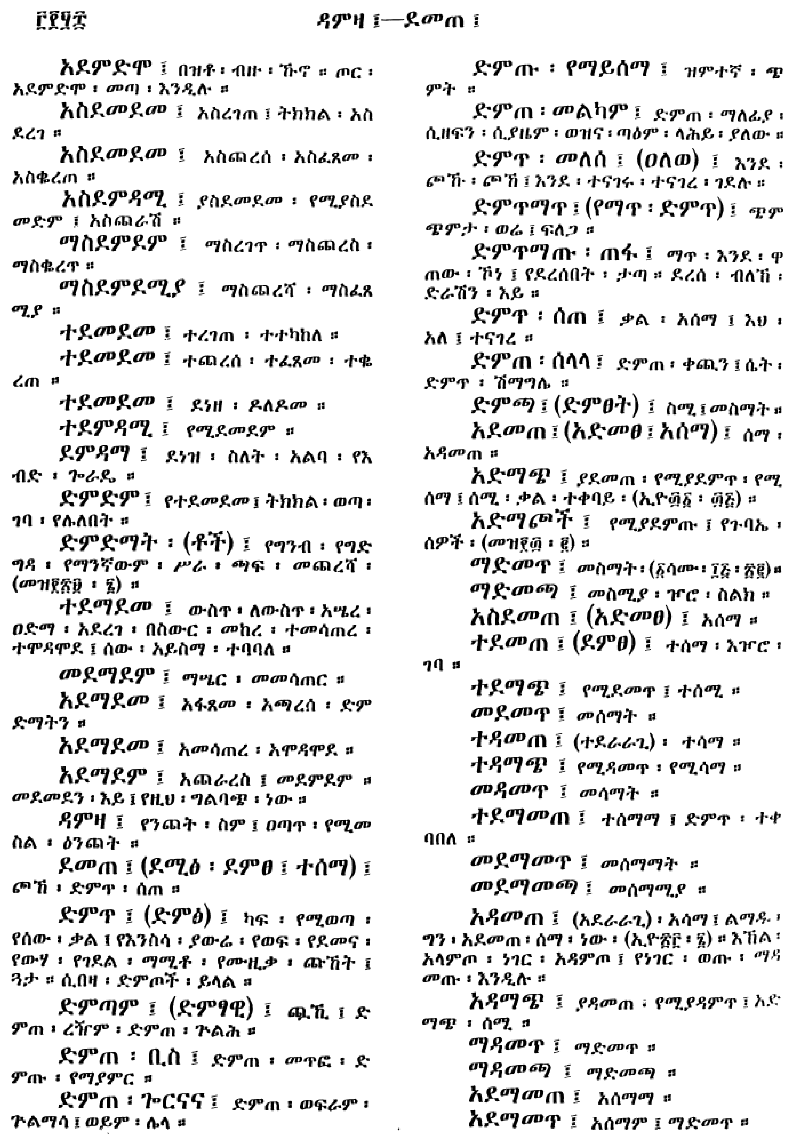 ፫፻፶፰ ዳምዛ ፤—ደመጠ ፤
አደምድሞ ፤ በዝቶ ፡ ብዙ ፡ ኹኖ ። ጦር ፡
አደምድሞ ፡ መጣ ፡ እንዲሉ ።
አስደመደመ ፤ አስረገጠ ፤ ትክክል ፡ አስ
ደረገ ።
አስደመደመ ፤ አስጨረሰ ፡ አስፈጸመ ፡
አስቈረጠ ።
አስደምዳሚ ፤ ያስደመደመ ፡ የሚያስደ
መድም ፤ አስጨራሽ ።
ማስደምደም ፤ ማስረገጥ ፡ ማስጨረስ ፡
ማስቈረጥ ።
ማስደምደሚያ ፤ ማስጨረሻ ፡ ማስፈጸ
ሚያ ።
ተደመደመ ፤ ተረገጠ ፡ ተተካከለ ።
ተደመደመ ፤ ተጨረሰ ፡ ተፈጸመ ፡ ተቈ
ረጠ ።
ተደመደመ ፤ ደነዘ ፡ ዶለዶመ ።
ተደምዳሚ ፤ የሚደመደም ።
ደምዳማ ፤ ደነዝ ፡ ስለት ፡ አልባ ፡ የእ
ብድ ፡ ጐራዴ ።
ድምድም ፤ የተደመደመ ፤ ትክክል ፡ ወጣ ፡
ገባ ፡ የሌለበት ።
ድምድማት ፡ (ቶች) ፤ የግንብ ፡ የግድ
ግዳ ፡ የማንኛውም ፡ ሥራ ፡ ጫፍ ፡ መጨረሻ ፡
ተደማደመ ፤ ውስጥ ፡ ለውስጥ ፡ አሤረ ፡
ዐድማ ፡ አደረገ ፡ በስውር ፡ መከረ ፡ ተመሳጠረ ፡
ተሞዳሞደ ፤ ሰው ፡ አይስማ ፡ ተባባለ ።
መደማደም ፤ ማሤር ፡ መመሳጠር ።
አደማደመ ፤ አፋጸመ ፡ አጫረሰ ፡ ድም
ድማትን ።
አደማደመ ፤ አመሳጠረ ፡ አሞዳሞደ ።
አደማደም ፤ አጨራረስ ፤ መደምደም ።
መደመደን ፡ እይ ፤ የዚህ ፡ ግልባጭ ፡ ነው ።
ዳምዛ ፤ የንጨት ፡ ስም ፤ ዐጣጥ ፡ የሚመ
ስል ፡ ዕንጨት ።
ደመጠ ፤ (ደሚፅ ፡ ደምፀ ፤ ተሰማ) ፤
ጮኸ ፡ ድምጥ ፡ ሰጠ ።
ድምጥ ፤ (ድምፅ) ፤ ካፍ ፡ የሚወጣ ፡
የሰው ፡ ቃል ፤ የእንስሳ ፡ ያውሬ ፡ የወፍ ፡ የደመና ፡
የውሃ ፡ የገደል ፡ ማሚቶ ፡ የሙዚቃ ፡ ጩኸት ፤
ጓታ ። ሲበዛ ፡ ድምጦች ፡ ይላል ።
ድምጣም ፤ (ድምፃዊ) ፤ ጯኺ ፤ ድ
ምጠ ፡ ረዥም ፡ ድምጠ ፡ ጕልሕ ።
ድምጠ ፡ ቢስ ፤ ድምጠ ፡ መጥፎ ፡ ድ
ምጡ ፡ የማያምር ።
ድምጠ ፡ ጐርናና ፤ ድምጠ ፡ ወፍራም ፡
ጕልማሳ ፤ ወይም ፡ ሌላ ።
ድምጡ ፡ የማይሰማ ፤ ዝምተኛ ፡ ጭ
ምት ።
ድምጠ ፡ መልካም ፤ ድምጠ ፡ ማለፊያ ፡
ሲዘፍን ፡ ሲያዜም ፡ ወዝና ፡ ጣዕም ፡ ላሕይ ፡ ያለው ።
ድምጥ ፡ መለሰ ፤ (ዐለወ) ፤ እንደ ፡
ጮኹ ፡ ጮኸ ፤ እንደ ፡ ተናገሩ ፡ ተናገረ ፡ ገደሉ ።
ድምጥማጥ ፤ (የማጥ ፡ ድምጥ) ፤ ጭም
ጭምታ ፡ ወሬ ፤ ፍለጋ ።
ድምጥማጡ ፡ ጠፋ ፤ ማጥ ፡ እንደ ፡ ዋ
ጠው ፡ ኾነ ፤ የደረሰበት ፡ ታጣ ። ደረሰ ፡ ብለኸ ፡
ድራሽን ፡ እይ ።
ድምጥ ፡ ሰጠ ፤ ቃል ፡ አሰማ ፤ እህ ፡
አለ ፤ ተናገረ ።
ድምጠ ፡ ሰላላ ፤ ድምጠ ፡ ቀጪን ፤ ሴት ፡
ድምጥ ፡ ሽማግሌ ።
ድምጫ ፤ (ድምፀት) ፤ ስሚ ፤ መስማት ።
አደመጠ ፤ (አድመፀ ፤ አሰማ) ፤ ሰማ ፡
አዳመጠ ።
አድማጭ ፤ ያደመጠ ፡ የሚያደምጥ ፡ የሚ
ሰማ ፤ ሰሚ ፡ ቃል ፡ ተቀባይ ፡
አድማጮች ፤ የሚያደምጡ ፤ የጉባኤ ፡
ሰዎች ፡
ማድመጥ ፤ መስማት ፡
ማድመጫ ፤ መስሚያ ፡ ዦሮ ፡ ስልክ ።
አስደመጠ ፤ (አድመፀ) ፤ አሰማ ።
ተደመጠ ፤ (ደምፀ) ፤ ተሰማ ፡ እዦሮ ፡
ገባ ።
ተደማጭ ፤ የሚደመጥ ፤ ተሰሚ ።
መደመጥ ፤ መሰማት ።
ተዳመጠ ፤ (ተደራራጊ) ፡ ተሳማ ።
ተዳማጭ ፤ የሚዳመጥ ፡ የሚሳማ ።
መዳመጥ ፤ መሳማት ።
ተደማመጠ ፤ ተሰማማ ፤ ድምጥ ፡ ተቀ
ባበለ ።
መደማመጥ ፤ መሰማማት ።
መደማመጫ ፤ መሰማሚያ ።
አዳመጠ ፤ (አደራራጊ) ፡ አሳማ ፤ ልማዱ ፡
ግን ፡ አደመጠ ፡ ሰማ ፡ ነው ፡ እኸል ፡
አላምጦ ፡ ነገር ፡ አዳምጦ ፤ የነገር ፡ ወጡ ፡ ማዳ
መጡ ፡ እንዲሉ ።
አዳማጭ ፤ ያዳመጠ ፡ የሚያዳምጥ ፤ አድ
ማጭ ፡ ሰሚ ።
ማዳመጥ ፤ ማድመጥ ።
ማዳመጫ ፤ ማድመጫ ።
አደማመጠ ፤ አሰማማ ።
አደማመጥ ፤ አሰማም ፤ ማድመጥ ።